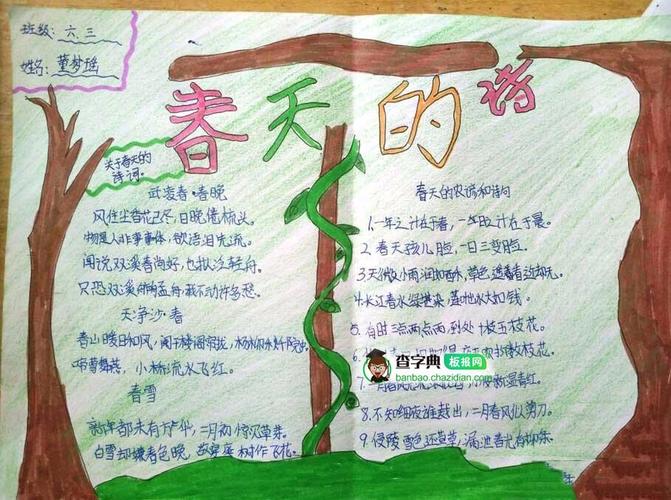 班级：六.三
姓名：董梦瑶
春天的诗
关于春天的
诗词.
武凌春·春晚
风住尘香花已尽，日晚倦梳头。
物是人非事事休，欲语泪先流。
闻说双溪春尚好，也拟泛轻舟。
只恐双溪舴艋舟，载不动许多愁。
天净沙·春
春山暖日和风，阑干楼阁帘拢，杨柳秋千院中。
啼莺舞燕，小桥流水飞红。
春雪
新年都未有芳华，二月初惊见草芽。
白雪却嫌春色晚，故穿庭树作飞花。
春天的农谚和诗句
1.一年之计在于春，一年之计在于晨。
2.春天孩儿脸，一日三变脸。
3.天街小雨润如酥，草色遥看近却无。
4.长江春水绿堪染，莲叶出水大如钱。
5.有时三点两点雨，到处十枝五枝花。
6.
枝花。
7.二月
湿杏红。
8.不知细叶谁裁出，二月春风似剪刀。
9.侵陵雪色还萱草，漏泄春光有柳条。
查字典 板报网
banbao.chazidian.com